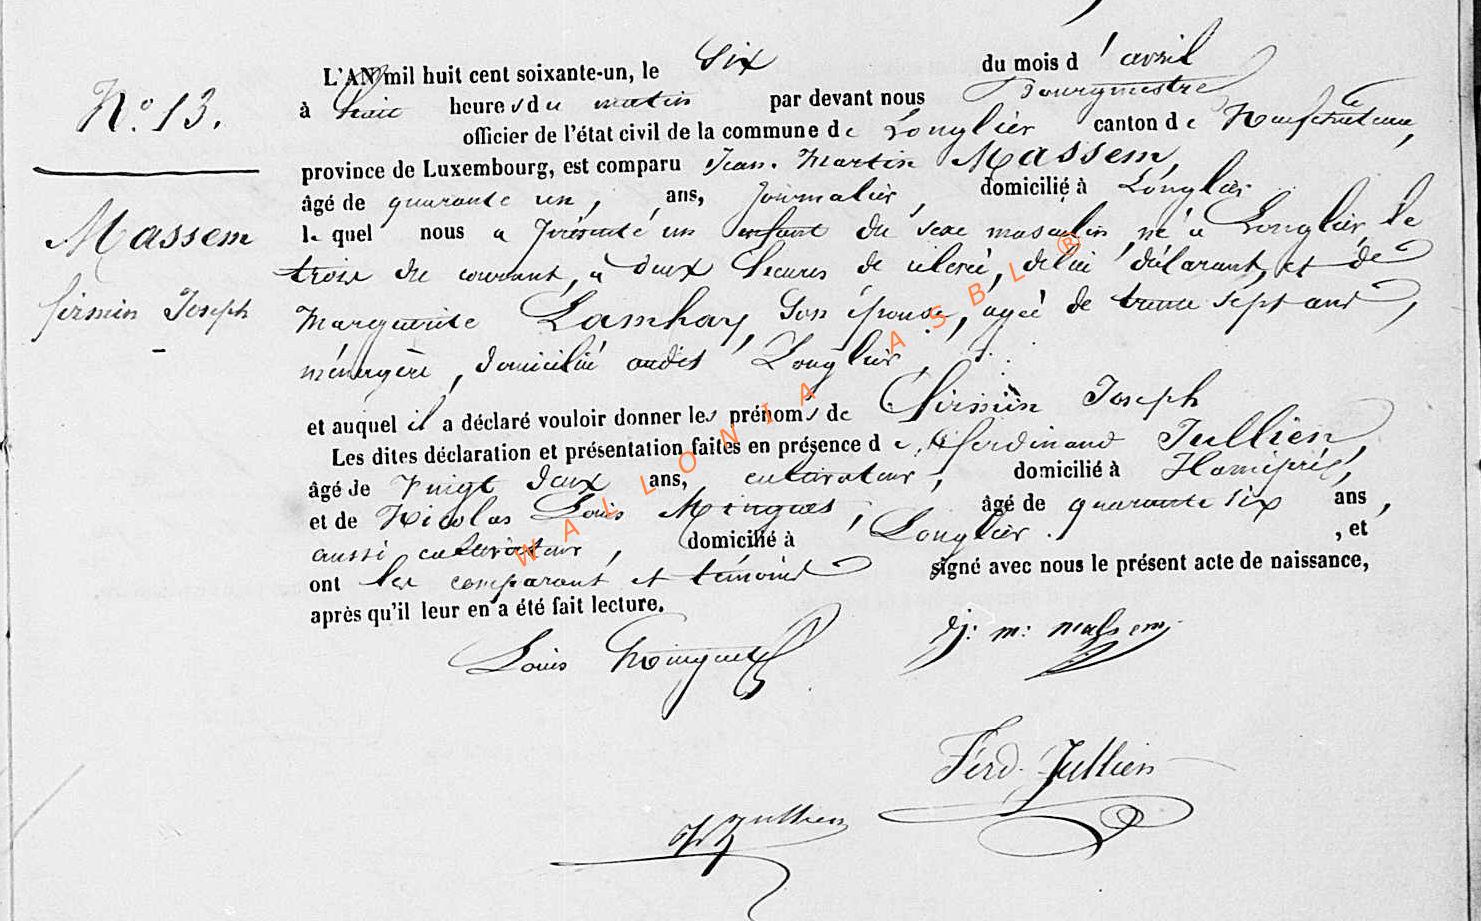 N.º 13.
Massem
firmin Joseph
L'AN mil huit cent soixante-un, le Six du mois d'avril
à huit heures du matin par devant nous Bourgmestre
officier de l'état civil de la commune de Longlier canton de Neufchateau,
province de Luxembourg, est comparu Jean-Martin Massem,
âgé de quarante un, ans, Journalier, domicilié à Longlier
lequel nous a présenté un enfant du sexe masculin, né à Longlier le
trois du courant, à deux heures de relevée, de lui déclarant, et de
Marguerite Lamhay, Son épouse, agée de trente sept ans,
ménagère, domiciliée audit Longlier,
et auquel il a déclaré vouloir donner les prénoms de Firmin Joseph
Les dites déclaration et présentation faites en présence de Ferdinand Jullien,
âgé de vingt deux ans, cultivateur, domicilié à Hamipré,
et de Nicolas Louis Minguet, âgé de quarante six ans,
aussi cultivateur, domicilié à Longlier. , et
ont les comparant et témoins signé avec nous le présent acte de naissance,
après qu'il leur en a été fait lecture.
Louis Minguet
j: m: massem
Ferd. Jullien
Jullien
WALLONIA ASBL ®